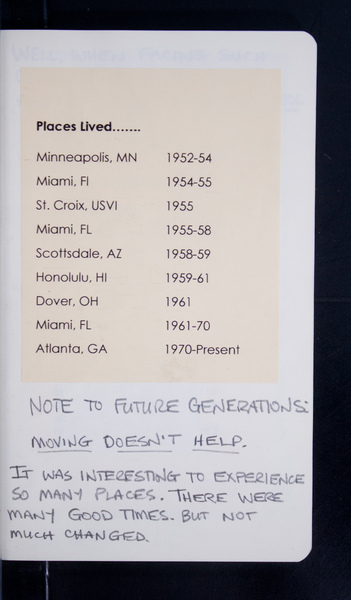 Places Lived.......
Minneapolis, MN 1952-54
Miami, Fl 1954-55
St. Croix, USVI 1955
Miami, FL 1955-58
Scottsdale, AZ 1958-59
Honolulu, HI 1959-61
Dover, OH 1961
Miami, FL 1961-70
Atlanta, GA 1970-Present
NOTE TO FUTURE GENERATIONS:
MOVING DOESN'T HELP.
IT WAS INTERESTING TO EXPERIENCE
SO MANY PLACES. THERE WERE
MANY GOOD TIMES. BUT NOT
MUCH CHANGED.